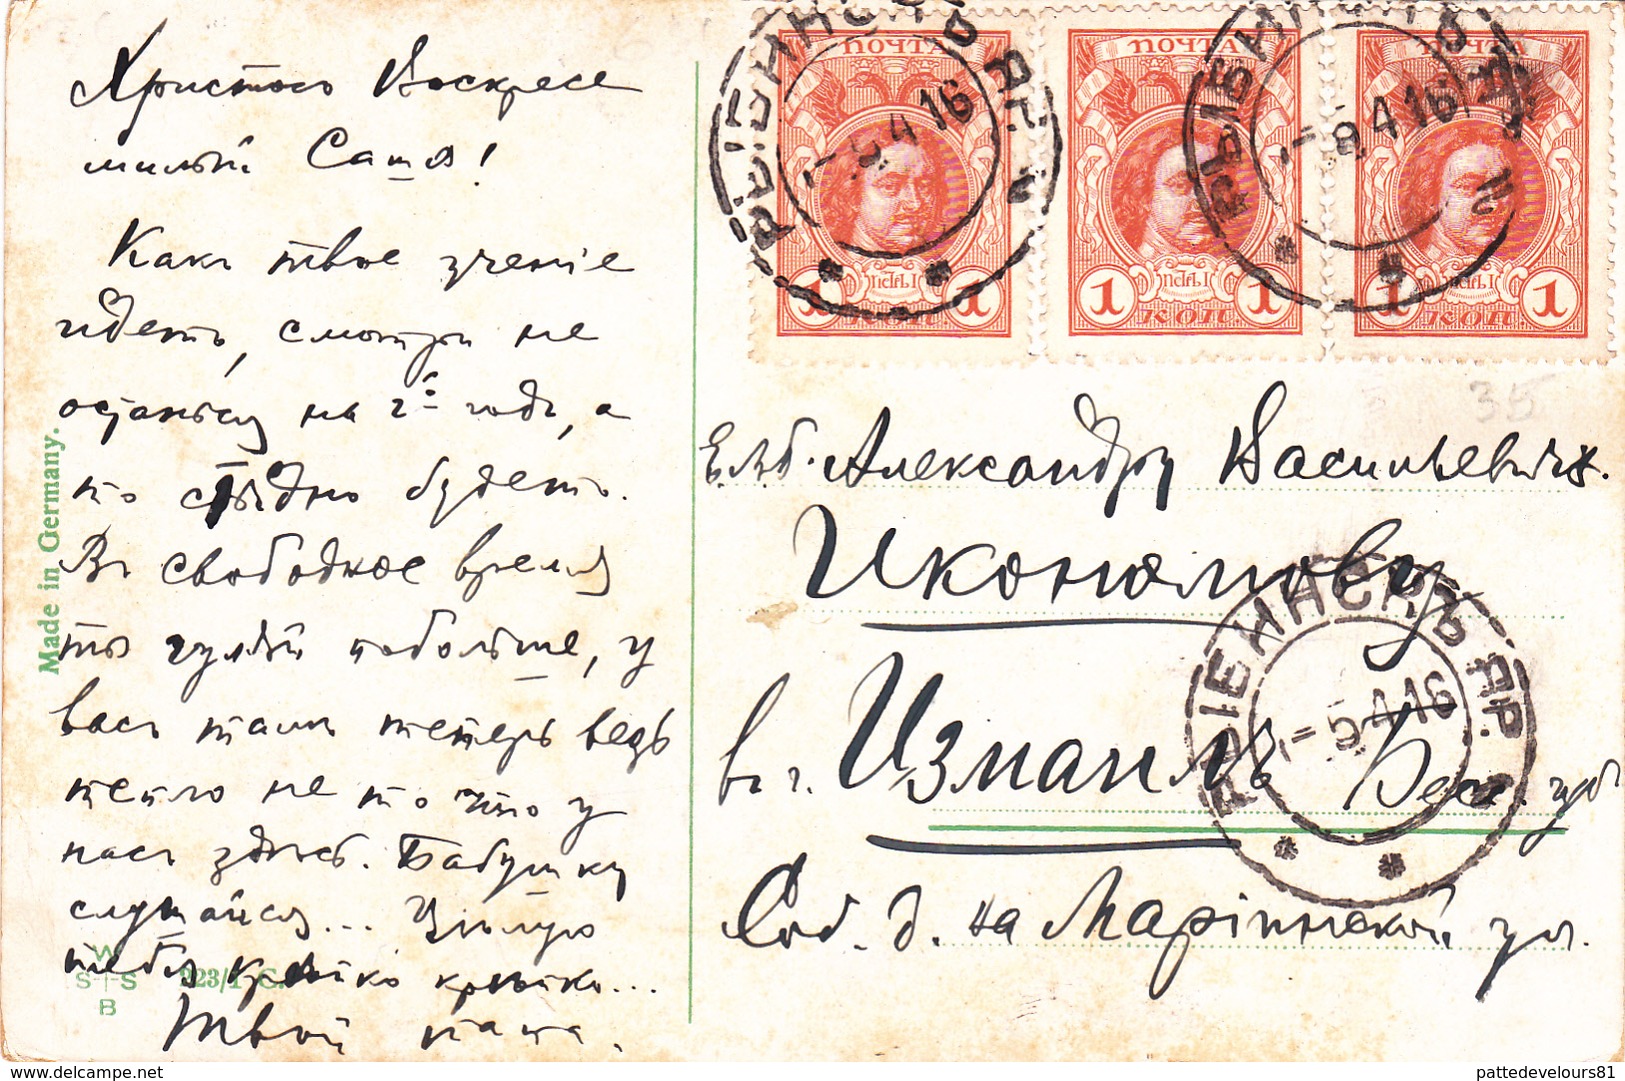 Христосъ Воскресе
милый Саша!
Какъ твое ученіе
идетъ, смотри не
останься на 2й годъ, а
то стыдно будетъ.
Въ свободное время
ты гуляй побольше, у
васъ тамъ теперь ведь
тепло не то что у
насъ здѣсь. Бабушку
слушайся... Цѣлую
тебя крѣпко крѣпко...
Твой папа.
Made in Germany.
W
S S
B
223/1
ПОЧТА
ПОЧТА
ПОЧТА
ПЕТРЪ I
ПЕТРЪ I
ПЕТРЪ I
1 КОП. 1
1 КОП. 1
1 КОП. 1
РЫБИНСКЪ ЯР.
5 4 16
РЫБИНСКЪ ЯР.
4 16
35
Е.В.Б. Александру Васильевичу.
Икономову
в г. Измаилъ Бесс. губ.
Соб. д. на Маріинской ул.
РЫБИНСКЪ ЯР.
-5 4 16
delcampe.net
pattedevelours81